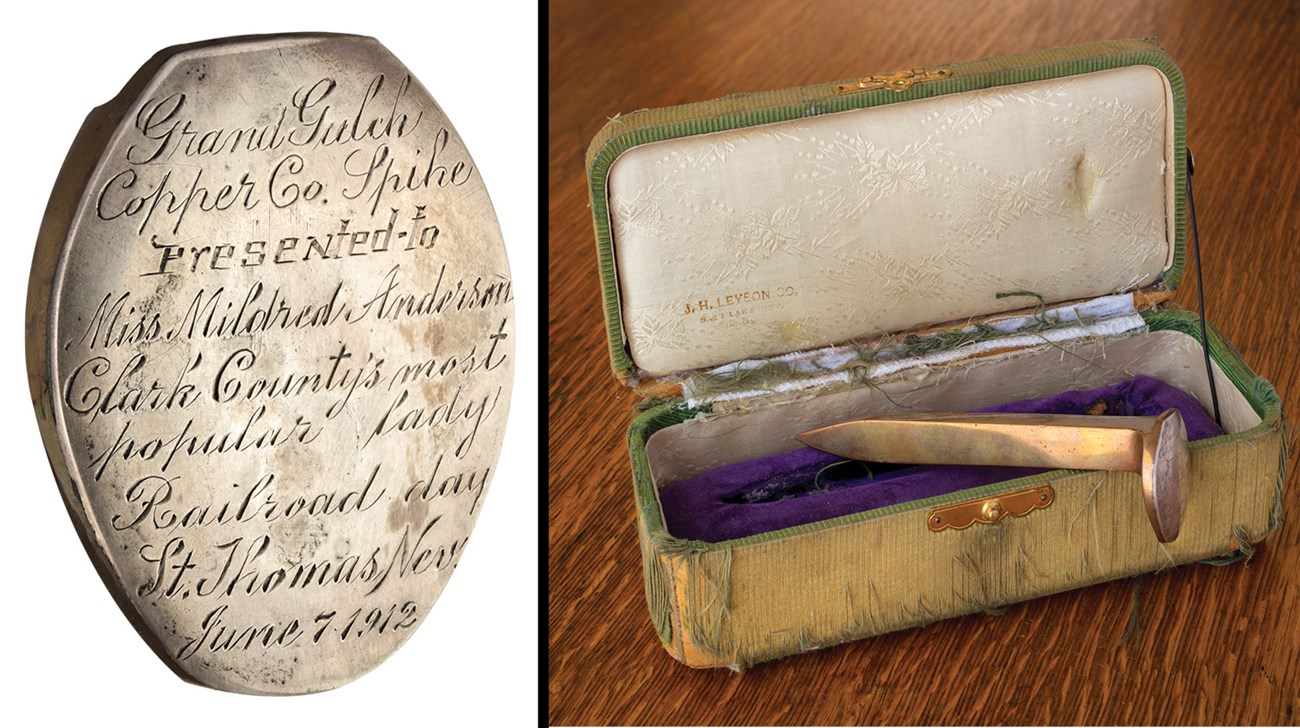 Grand Gulch
Copper Co. Spike
Presented-to
Miss Mildred Anderson
Clark County's most
popular lady
Railroad day
St. Thomas, Nev.
June 7-1912
J. H. LEYSON CO.
SALT LAKE